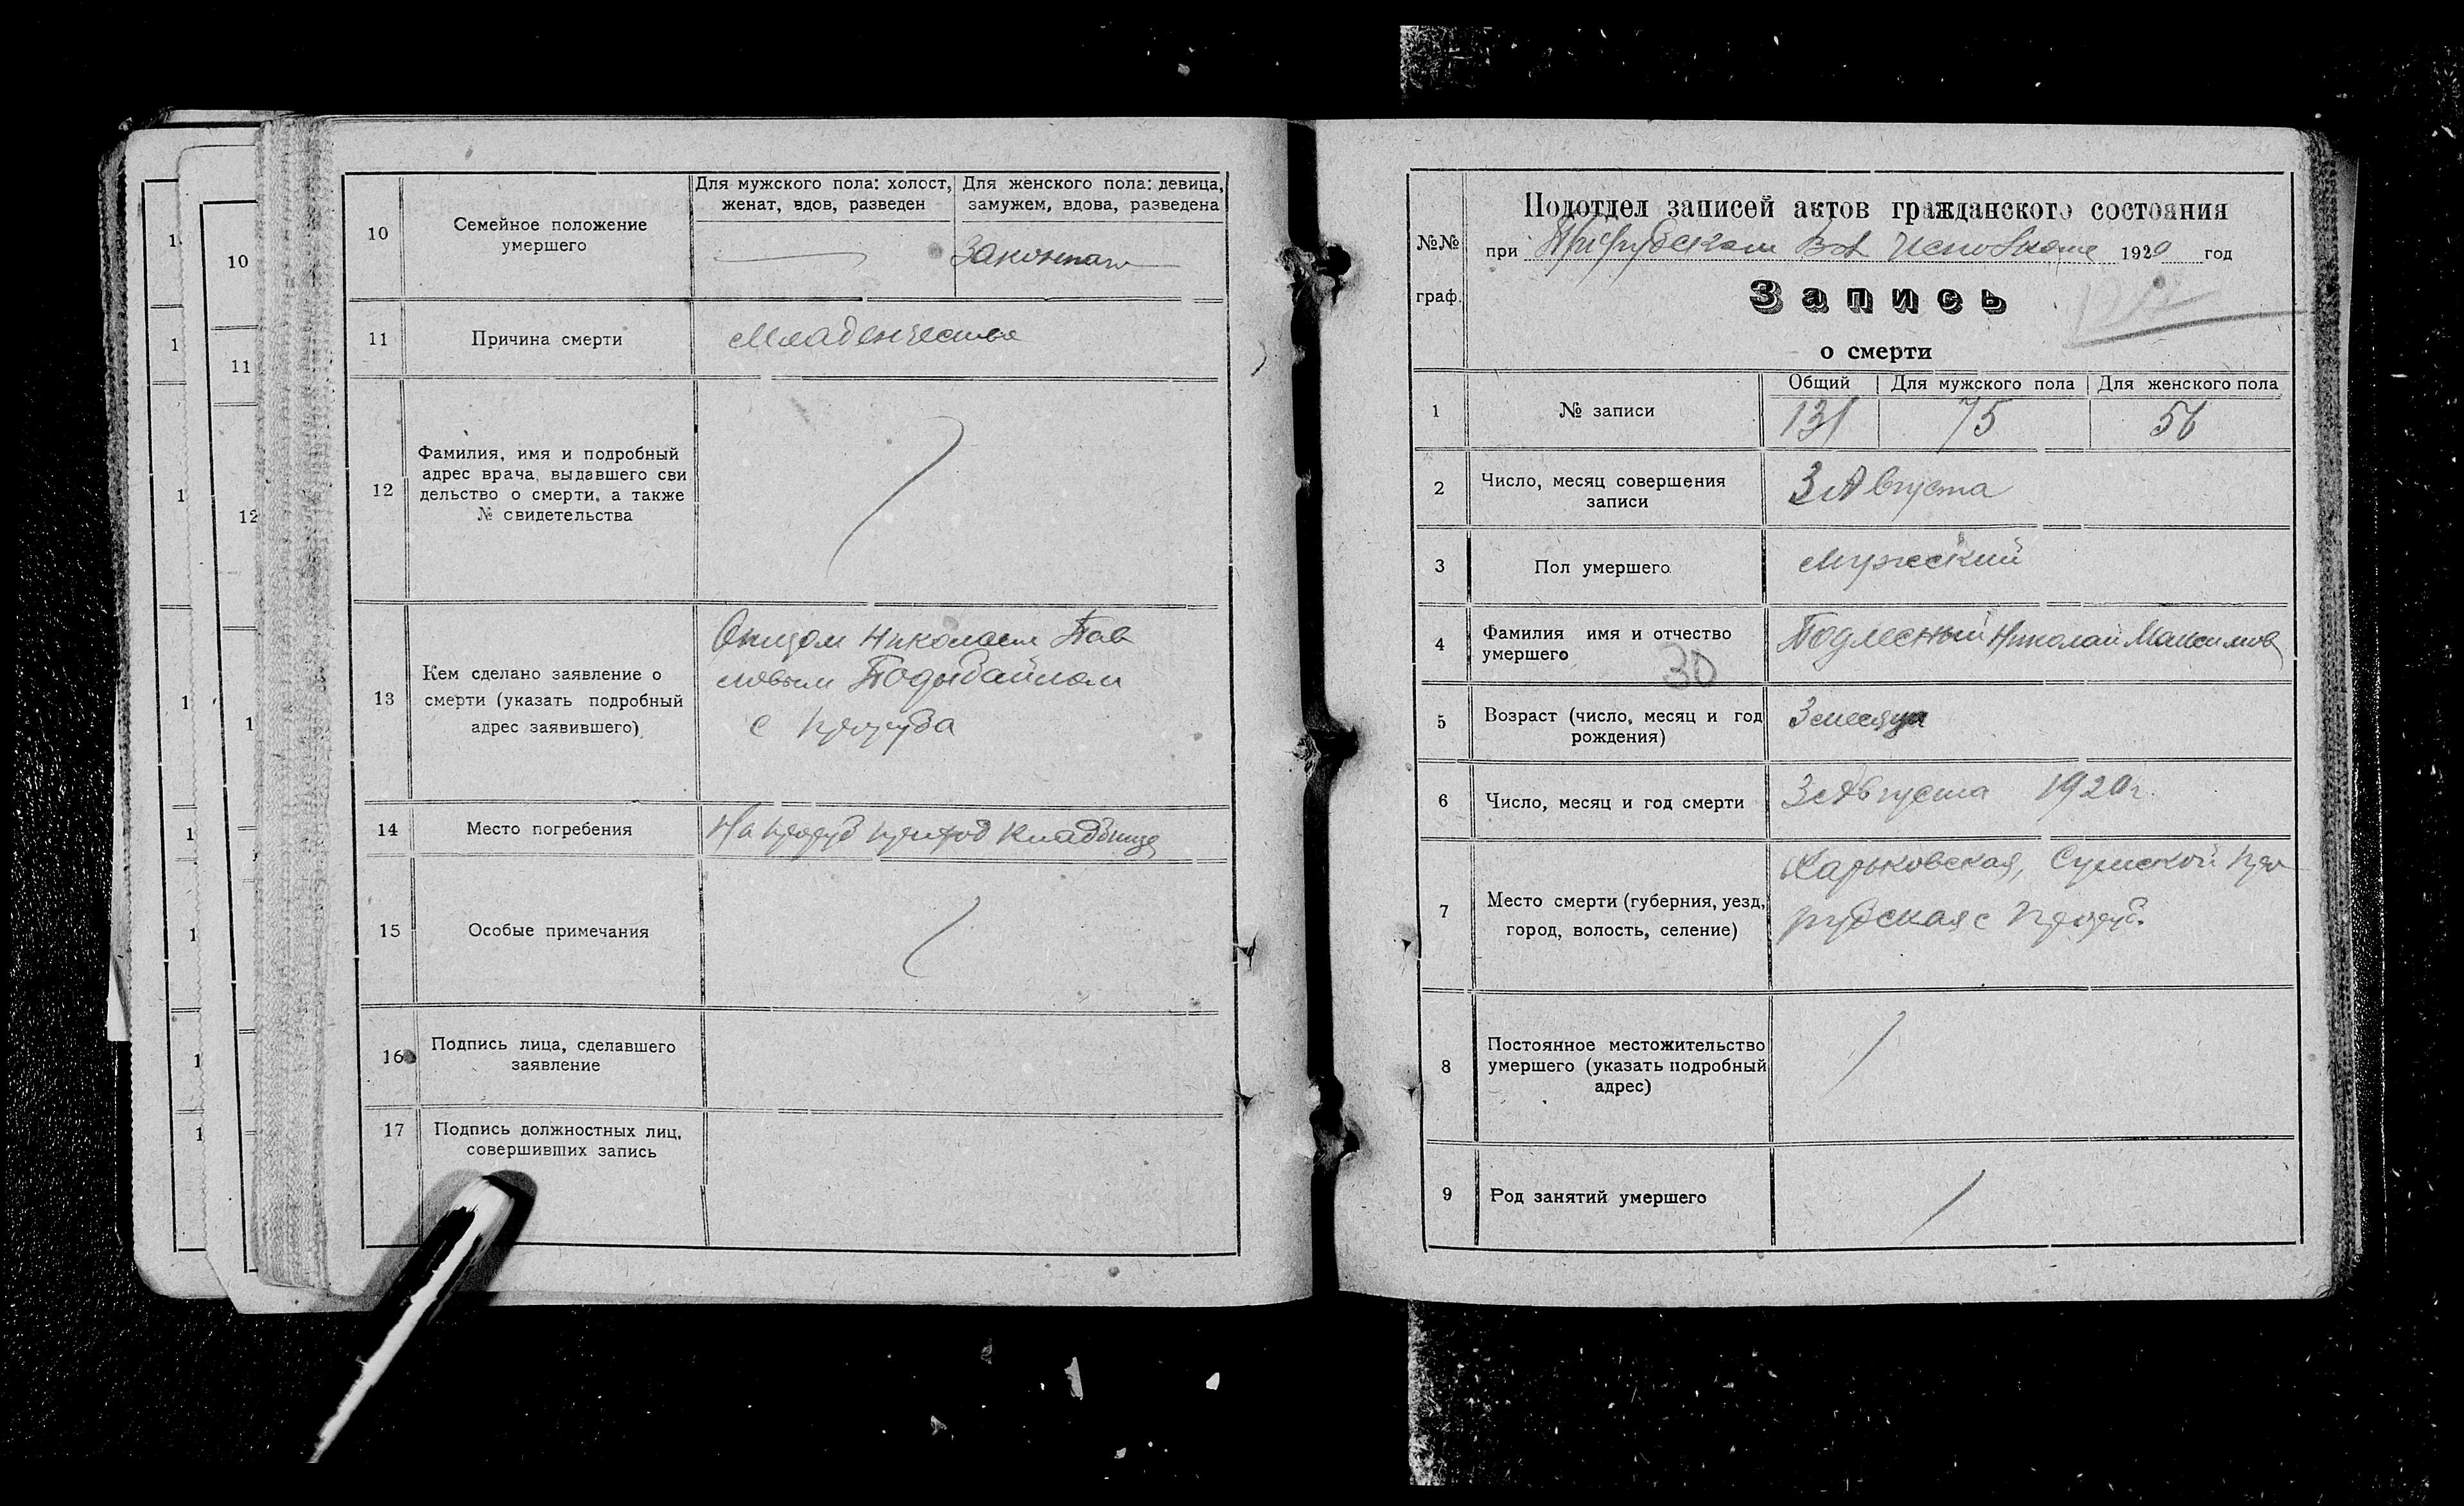 10
Семейное положение
умершего
Для мужского пола: холост,
женат, вдов, разведен
Для женского пола: девица,
замужем, вдова, разведена
11
Причина смерти
Младенчество
12
Фамилия, имя и подробный
адрес врача, выдавшего сви
дельство о смерти, а также
№ свидетельства
13
Кем сделано заявление о
смерти (указать подробный
адрес заявившего)
Отцом Николаем Пав
ловым
с
14
Место погребения
На приход Кладбище
15
Особые примечания
16
Подпись лица, сделавшего
заявление
17
Подпись должностных лиц,
совершивших запись
Подотдел записей актов гражданского состояния
№№
граф.
при Вол Исполкоме 1920 год
Запись
о смерти
1
№ записи
Общий
Для мужского пола
Для женского пола
131
75
56
2
Число, месяц совершения
записи
3 Августа
3
Пол умершего
Мужеский
4
Фамилия имя и отчество
умершего
30
Подлесный Николай Максимов
5
Возраст (число, месяц и год
рождения)
3 месяца
6
Число, месяц и год смерти
3 Августа 1920 г.
7
Место смерти (губерния, уезд,
город, волость, селение)
Харьковская, Сумской
8
Постоянное местожительство
умершего (указать подробный
адрес)
9
Род занятий умершего
10
11
12